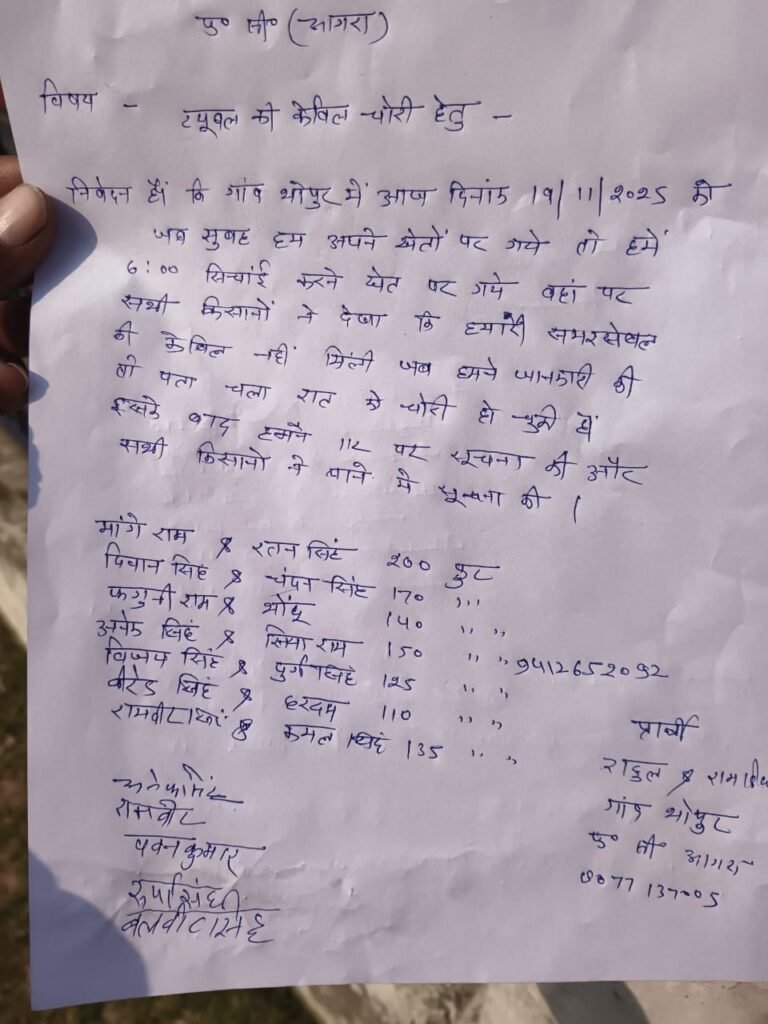 पु० सी० (आगरा)
विषय - ट्यूवल की केविल चोरी हेतु -
निवेदन हैं कि गांव थोपुर में आज दिनांक 19/11/2025 को
जब सुबह हम अपने खेतों पर गये तो हमें
6:00 सिचांई करने खेत पर गये वहां पर
सभी किसानों ने देखा कि हमारी समरसेवल
की केविल नहीं मिली जब हमने जानकारी की
तो पता चला रात को चोरी हो चुकी हैं
इसके बाद हमने 112 पर सूचना की और
सभी किसानो ने थाने में सूचना की ।
मांगे राम & रतन सिंह 200 फुट
दिवान सिंह & चंदन सिंह 170 ,,,
फगुनी राम & भोंदू 140 ,, ,,
अनेक सिंह & सिया राम 150 ,, ,, 9412652092
विजय सिंह & पुर्ण सिंह 125 ,, ,,
वीरेंद्र सिंह & हरदम 110 ,, ,,
रामवीर सिंह & कमल सिंह 135 ,, ,,
प्रार्थी
राहुल &
गांव थोपुर
पु० सी० आगरा
9077137005
अनेक सिंह
रामवीर
पवन कुमार
बलवीर सिंह